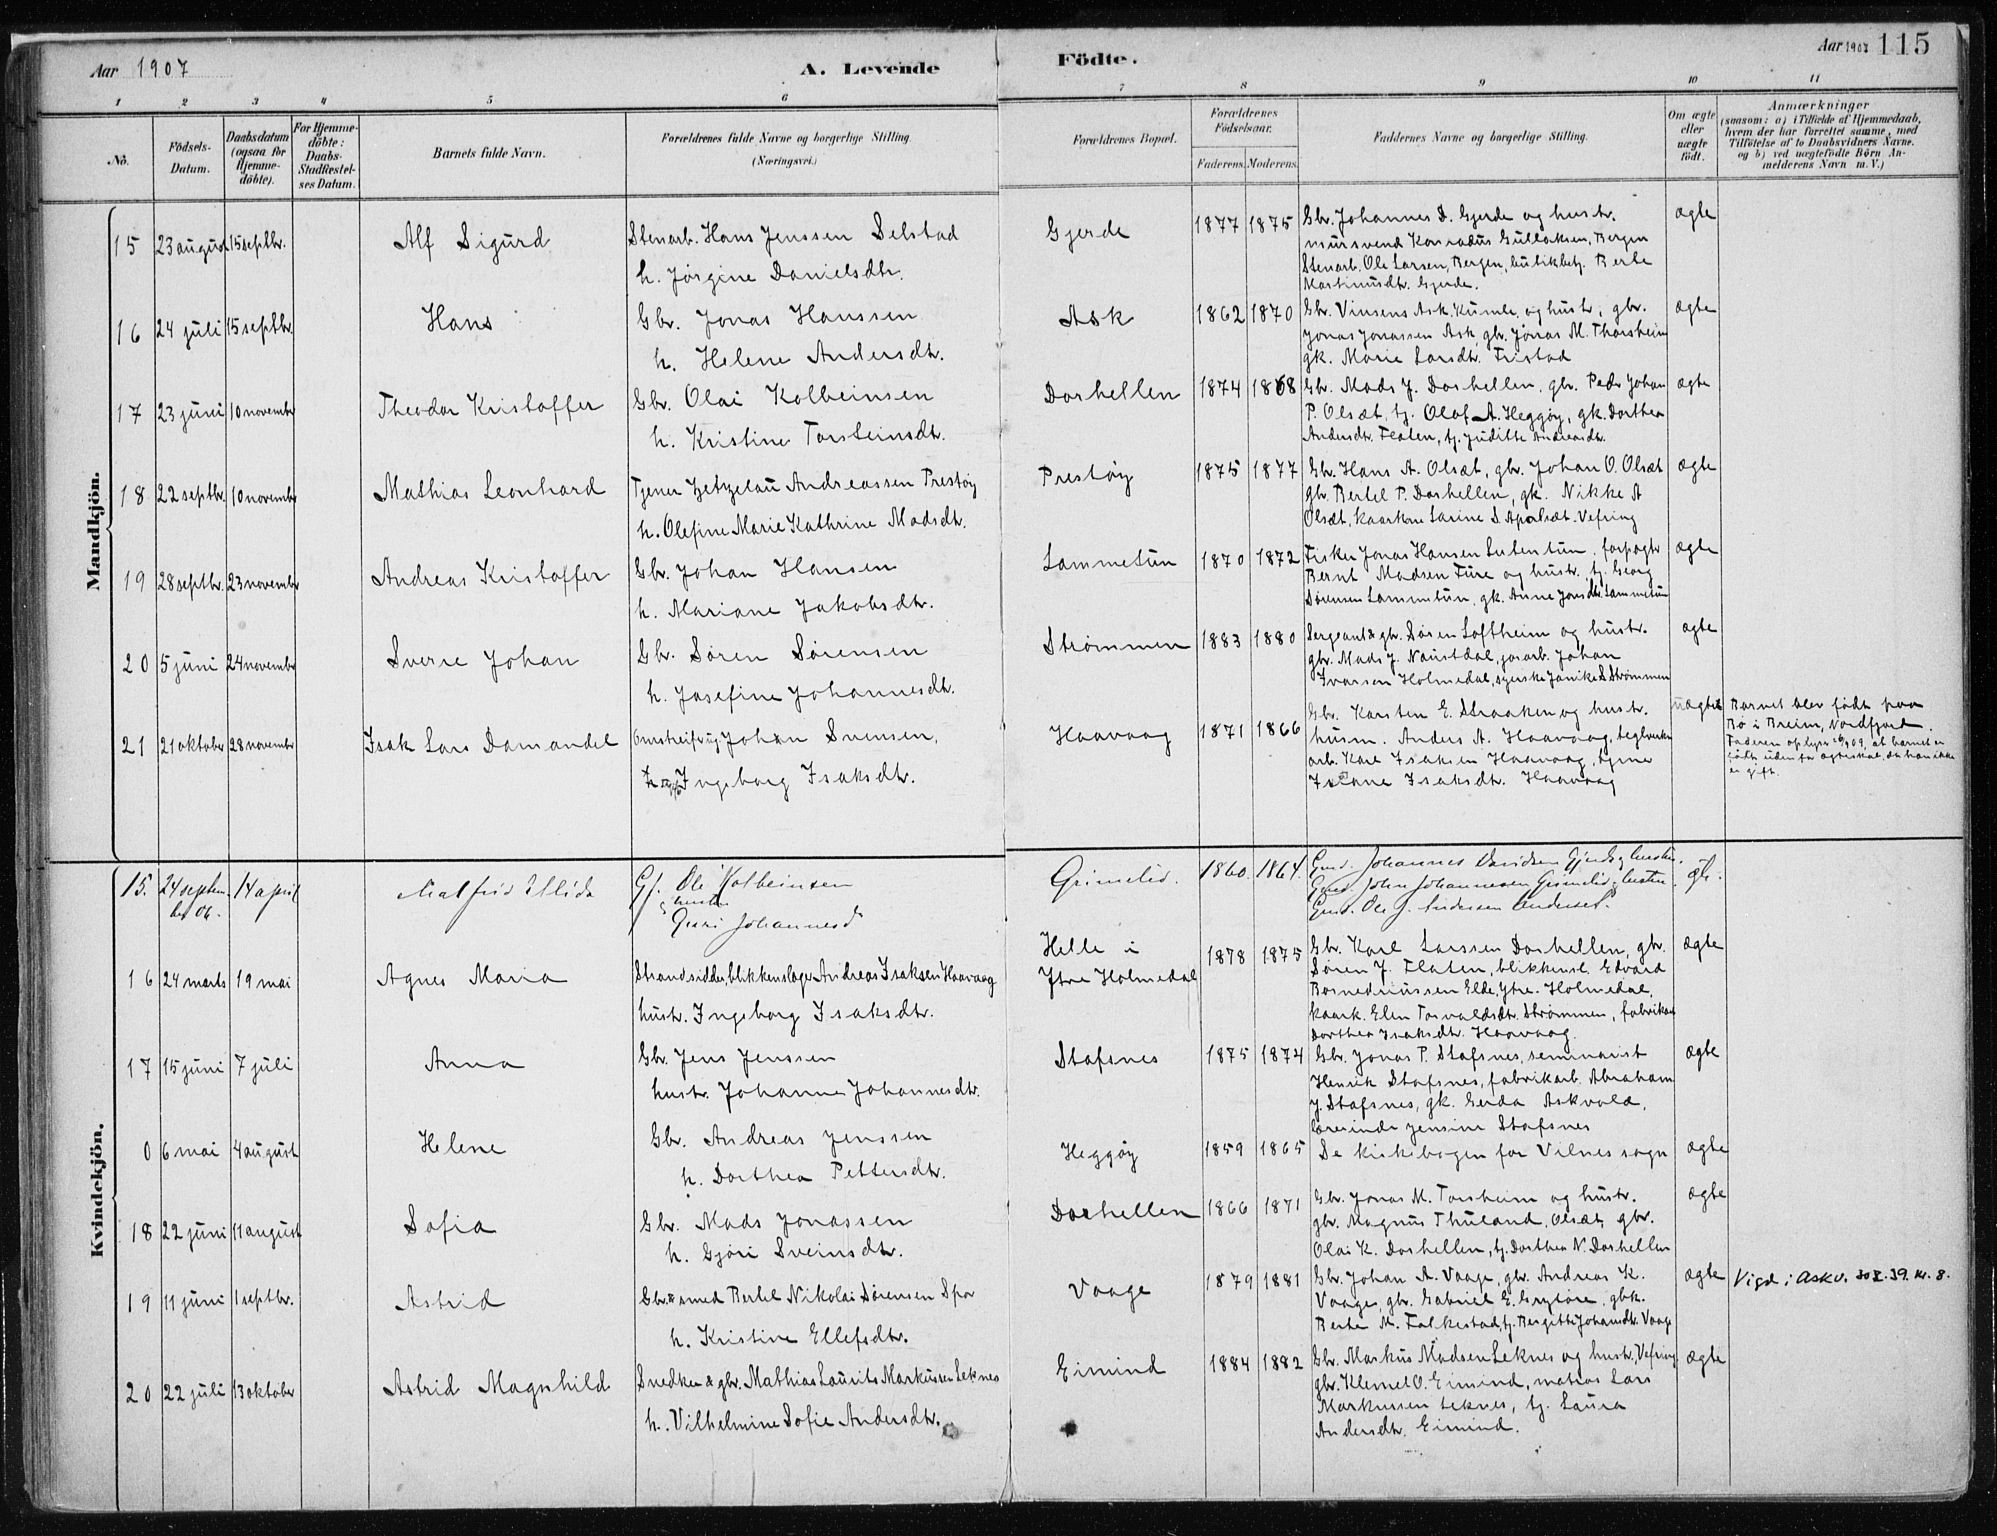 Aar 1907
A. Levende
Födte.
Aar 1907 115
1 2 3 4 5 6 7 8 9 10 11
No.
Födsels-
Datum.
Daabsdatum
(ogsaa for
Hjemme-
döbte).
For Hjemme-
döbte:
Daabs-
Stadfæstel-
ses Datum.
Barnets fulde Navn.
Forældrenes fulde Navne og borgerlige Stilling.
(Næringsvei.)
Forældrenes Bopæl.
Forældrenes
Födselsaar.
Faderens. Moderens.
Faddernes Navne og borgerlige Stilling.
Om ægte
eller
uægte
födt.
Anmærkninger
(saasom: a) i Tilfælde af Hjemmedaab,
hvem der har forrettet samme, med
Tilföielse af to Daabsvidners Navne.
og b) ved uægtefödte Börn An-
melderens Navn m. V.)
Mandkjön.
15 23 august 15 septbr. Alf Sigurd Stenarb. Hans Jenssen Selstad
h. Jørgine Danielsdtr.
Gjerde 1877 1875 Gbr. Johannes D. Gjerde og hustr.
mursvend Konradus Gullaksen, Bergen
Stenarb. Ole Larsen, Bergen, butikbetj. Berte
Martinusdtr. Gjerde.
ægte
16 24 juli 15 septbr. Hans Gbr. Jonas Hanssen
h. Helene Andersdtr.
Ask 1862 1870 Gbr. Vinsens Ask, Kumle, og hustr, gbr.
Jonas Jonassen Ask, gbr. Jonas M. Thorsheim
gk. Marie Larsdtr. Fristad
ægte
17 23 juni 10 novembr Theodor Kristoffer Gbr. Olai Kolbeinsen
h. Kristine Torsteinsdtr.
Dorhellen 1874 1868 Gbr. Mads J. Dorhellen, gbr. Peder Johan
P. Olsæt, tj. Olaf A. Heggøy, gk. Dorthea
Andersdtr. Flaten, tj. Judithe Andreasdtr.
ægte
18 22 septbr. 10 novembr Mathias Leonhard Tjener Zetzelau Andreassen Prestøy
h. Olefine Marie Kathrine Madsdtr.
Prestøy 1875 1877 Gbr. Hans A. Olsæt, gbr. Johan O. Olsæt
gbr. Bertel P. Dorhellen, gk. Nikke A
Olsæt, kaarkone Larine S. Apalsæt. Vefring
ægte
19 28 septbr. 23 novembr Andreas Kristoffer Gbr. Johan Hansen
h. Mariane Jakobsdtr.
Lammetun 1870 1872 Fisker Jonas Hansen Lutentun, forpagtr
Bernt Madsen Fure og hustr, tj. Georg
Sørensen Lammetun, gk. Anne Jonsdtr. Lammetun
ægte
20 5 juni 24 novembr Sverre Johan Gbr. Søren Sørensen
h. Josefine Johannesdtr.
Strømmen 1883 1880 Sergeant & gbr. Søren Loftheim og hustr.
gbr. Mads J. Naustdal, jorarb. Johan
Ivarsen Holmedal, syerske Janikke S. Strømmen
ægte
21 21 oktober 28 novembr Isak Lars Damandel Omstreifrug Johan Svensen,
Ingeborg Isaksdtr.
Haavaag 1871 1866 Gbr. Karsten E. Straaken og hustr.
husm. Anders A. Haavaag, teglverks
arb. Karl Isaksen Haavaag, tjener
Isane Isaksdtr. Haavaag
uægte Barnet blev født paa
Bø i Breim, Nordfjord.
Faderen oplyser 09, at barnet er
født uden for ægteskab, da han ikke
er gift.
Kvindekjön.
15. 24 septem 14 april Malfrid Alida Gf. Ole Kolbeinsen
ber 06. og hustr
Guri Johannesd
Grimelid. 1860. 1864. Gmd. Johannes Davidsen Gjerde og hustru.
Gmd. John Johannesen Grimelid og hustru.
Gmd. Ole J.
ægt.
16 24 marts 19 mai Agnes Maria Strandsidder, blikkenslager Andreas Isaksen Haavaag
hustr. Ingeborg Isaksdtr.
Helle i
Ytre Holmedal 1878 1875 Gbr. Karl Larssen Dorhellen, gbr.
Søren J. Flaten, blikkensl. Edvard
Bosnedniussen Elde, Ytre-Holmedal,
kaark. Elen Torvaldsdtr. Strømmen, fabrikar
Dorthea Isaksdtr. Haavaag
ægte
17 15 juni 7 juli Anna Gbr. Jens Jenssen
hustr. Johanne Johannesdtr.
Stafsnes 1875 1874 Gbr. Jonas P. Stafsnes, seminarist
Henrik Stafsnes, fabrikarb. Abraham
J. Stafsnes, gk. Gerda Askvold,
lærerinde Jensine Stafsnes
ægte
0 6 mai 4 august Helene Gbr. Andreas Jenssen
h. Dorthea Pettersdtr.
Heggøy 1859 1865 Se kirkebogen for Vilnes sogn ægte
18 22 juni 11 august Sofia Gbr. Mads Jonassen
h. Gjøri Sveinsdtr.
Dorhellen 1866 1871 Gbr. Jonas M. Torsheim og hustr.
gbr. Magnus Thuland, Olsæt, gbr.
Olai K. Dorhellen, tj. Dorthea N. Dorhellen
ægte
19 11 juni 1 septbr. Astrid Gbr. & smed Bertel Nikolai Sørensen Spor
h. Kristine Ellefsdtr.
Vaage 1879 1881 Gbr. Johan A. Vaage, gbr. Andreas K.
Vaage, gbr. Gabriel E. Grytøre, gbk.
Berte M. Falkestad, tj. Bergitte Johansdtr. Vaage
ægte Vigd i Askv. 30 X. 39. nr. 8.
20 22 juli 13 oktober Astrid Magnhild Snedker & gbr. Mathias Laurits Markussen Leknes
h. Vilhelmine Sofie Andersdtr.
Eimind 1884 1882 Gbr. Markus Madsen Leknes og hustr, Vefring
gbr. Klemet O. Eimind, matros Lars
Markussen Leknes, tj. Laura
Andersdtr. Eimind.
ægte